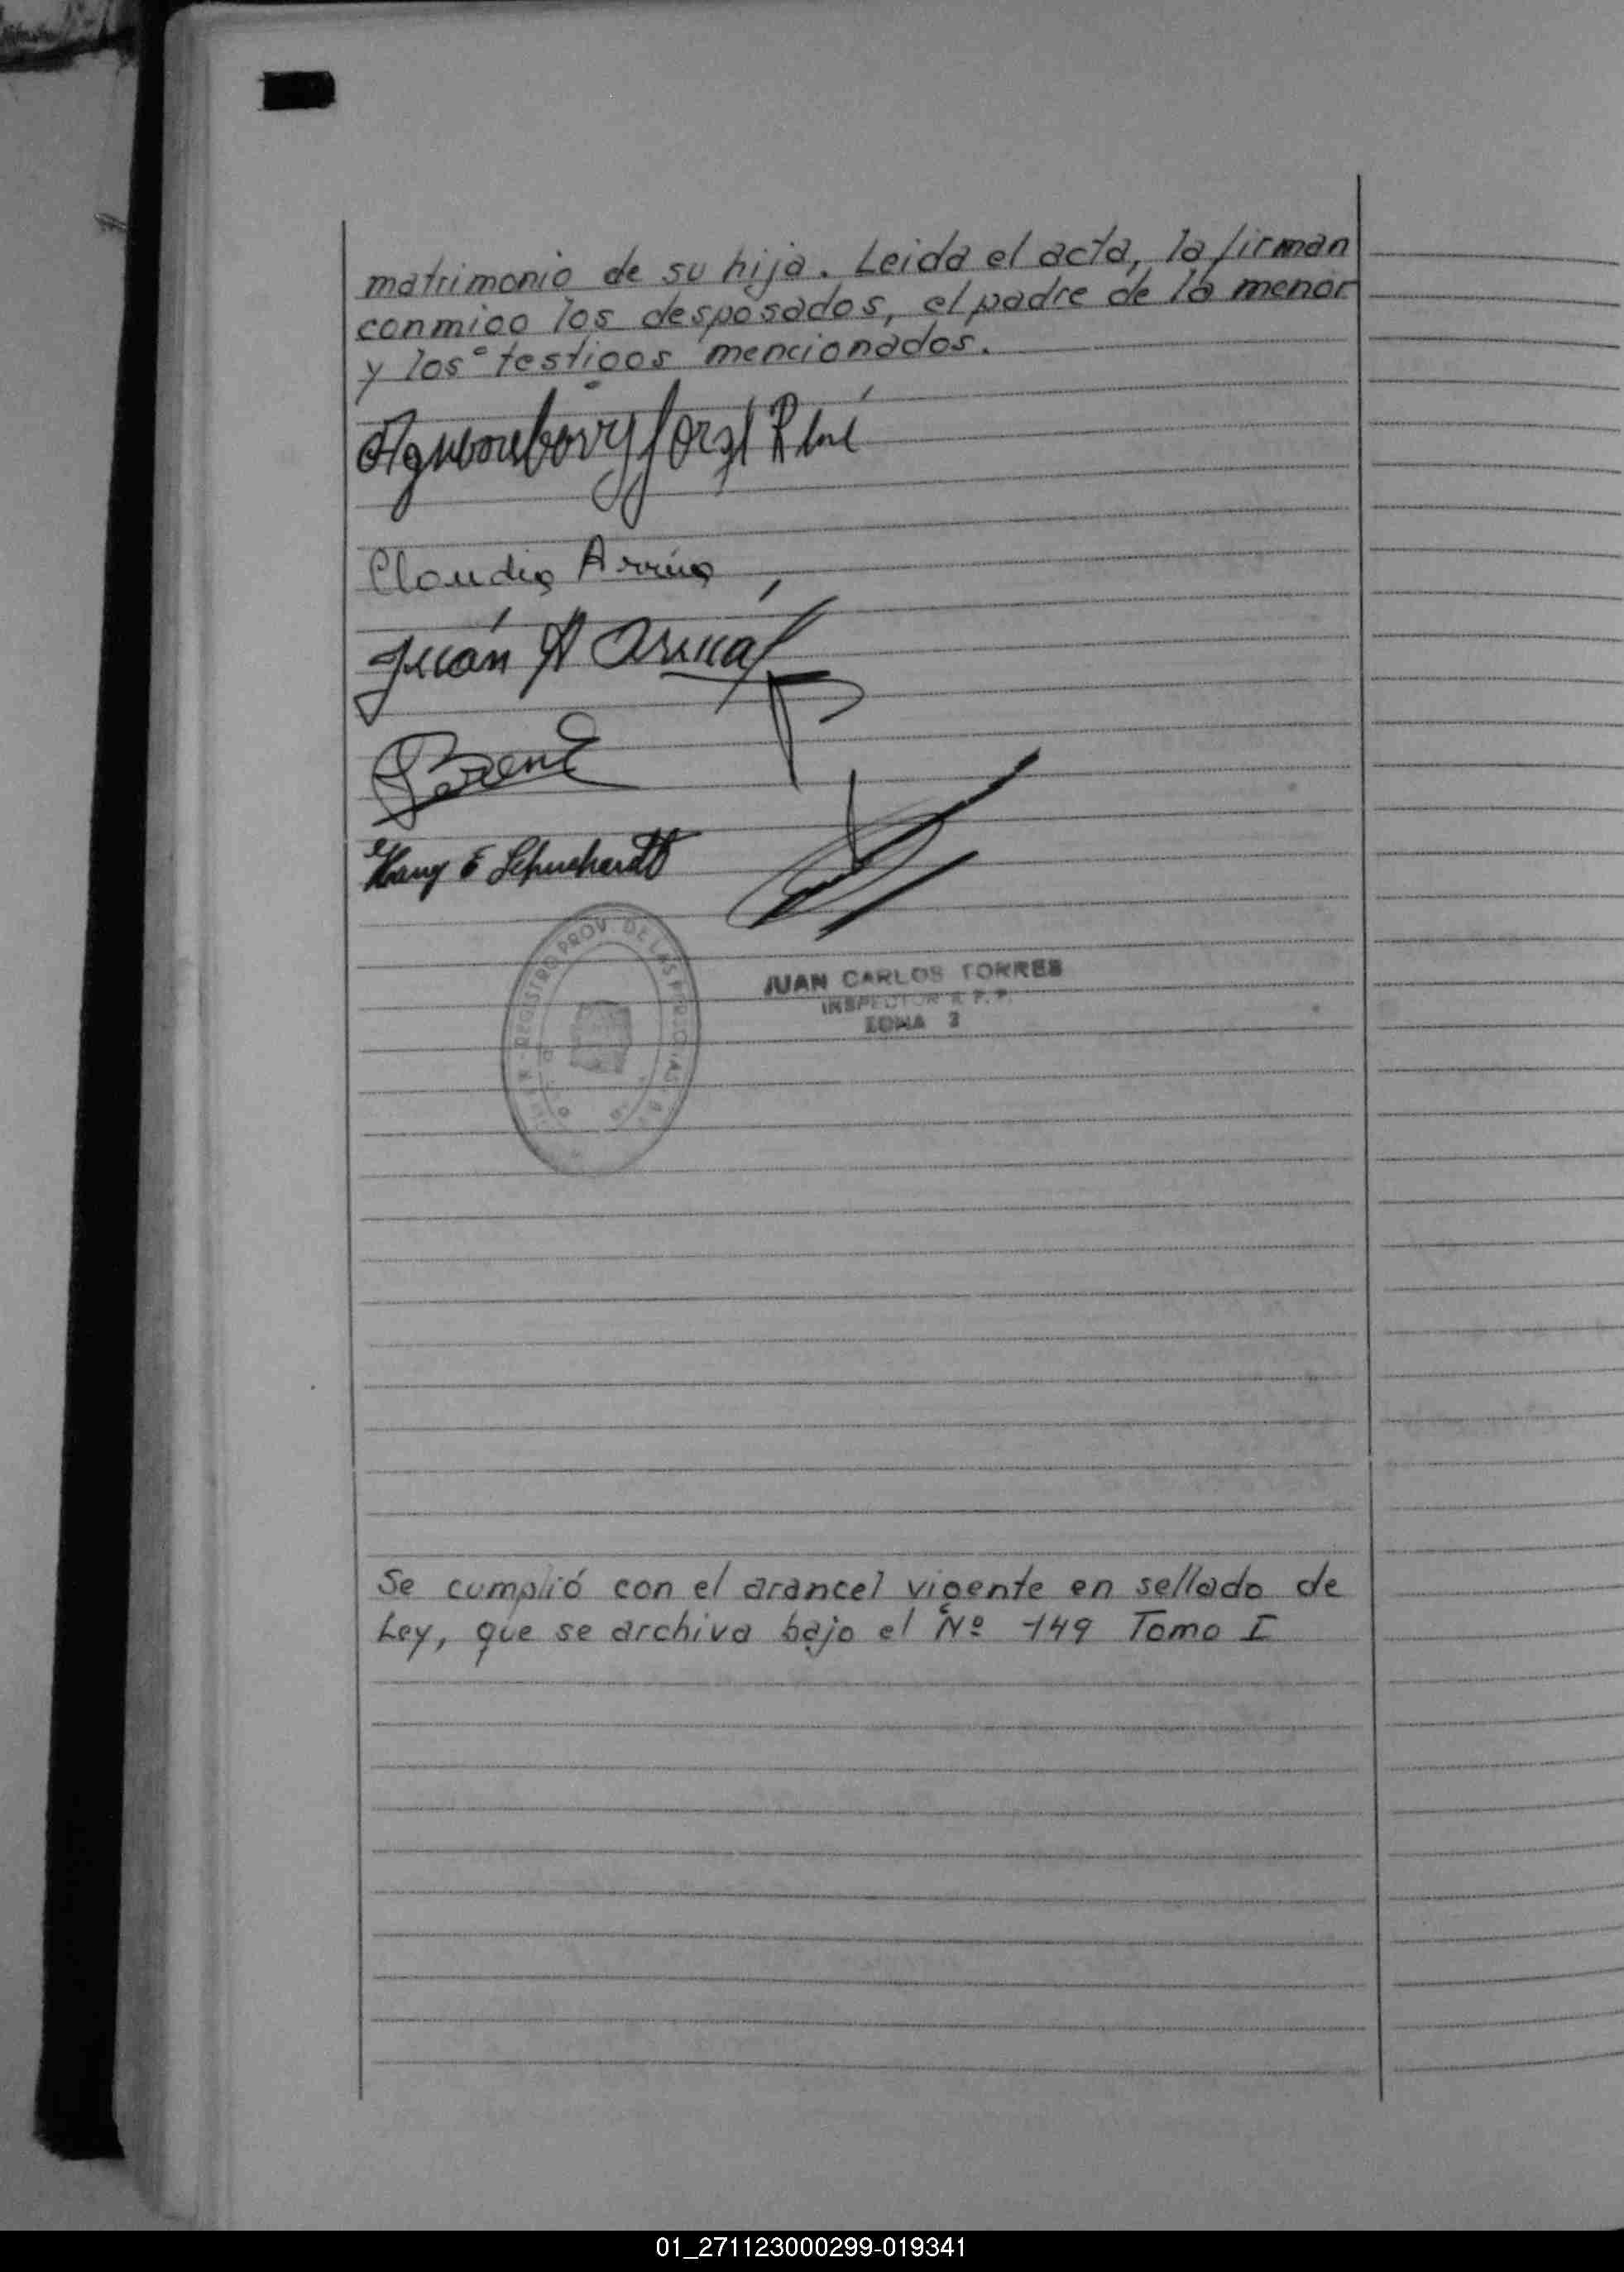 matrimonio de su hija. Leida el acta, la firman
conmigo los desposados, el padre de la menor
y los testigos mencionados.
Claudia
Juan A
E Schuchardt
REGISTRO PROV. DE LAS
JUAN CARLOS TORRES
INSPECTOR R. P. P.
ZONA 3
Se cumplió con el arancel vigente en sellado de
Ley, que se archiva bajo el Nº 149 Tomo I
01_271123000299-019341